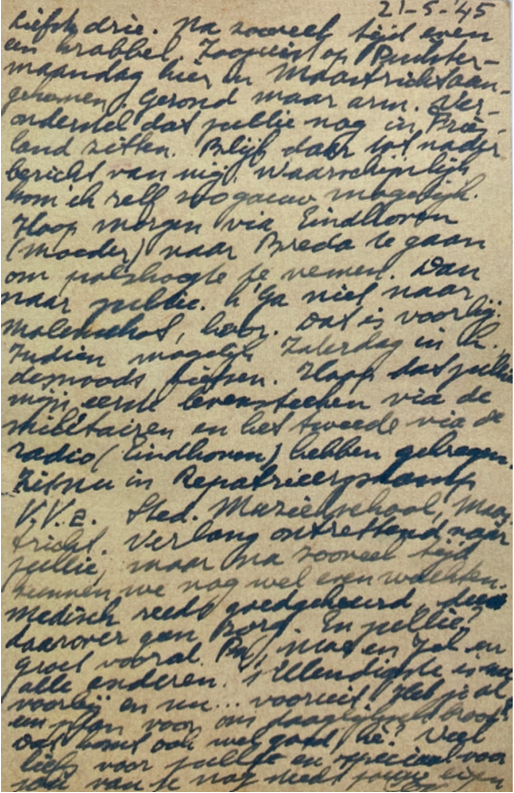 21-5-'45
Liefste drie. Na zooveel tijd even
een krabbel. Zoojuist op Pinkster-
maandag hier in Maastricht aan-
gekomen. Gezond maar arm. Ver-
onderstel dat jullie nog in Fries-
land zitten. Blijf daar tot nader
bericht van mij. Waarschijnlijk
kom ik zelf zoo gauw mogelijk.
Hoop morgen via Eindhoven
(moeder) naar Breda te gaan
om poolshoogte te nemen. Dan
naar jullie. Ga niet naar
Molenschot, hoor. Dat is voorbij.
Indien mogelijk Zaterdag in
desnoods fietsen. Hoop dat jullie
mijn eerste levensteeken via de
militairen en het tweede via de
radio (Eindhoven) hebben gekregen.
Zit nu in Repatrieeringskamp
Sted. Muziekschool, Maas-
tricht. Verlang ontzettend naar
jullie, maar na zooveel tijd
kunnen we nog wel even wachten.
Medisch reeds goedgekeurd,
daarover geen zorg. En jullie?
groet vooral Pa, moe en Jel en
alle anderen. 't Ellendigste is nu
voorbij en nu... vooruit. Heb je al
een plan voor ons dagelijksch brood?
Dat komt ook wel goed, hè? Veel
liefs voor jullie en speciaal voor
jou van je nog steeds jouwe eigen